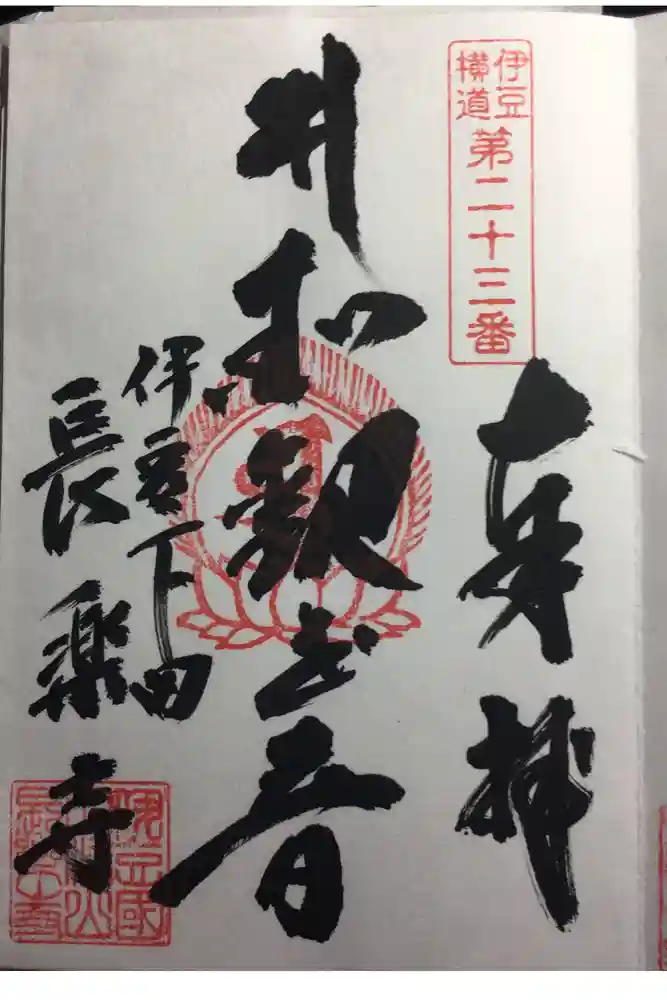 伊豆
横道
第二十三番
奉拝
観世音
伊豆下田
長楽寺